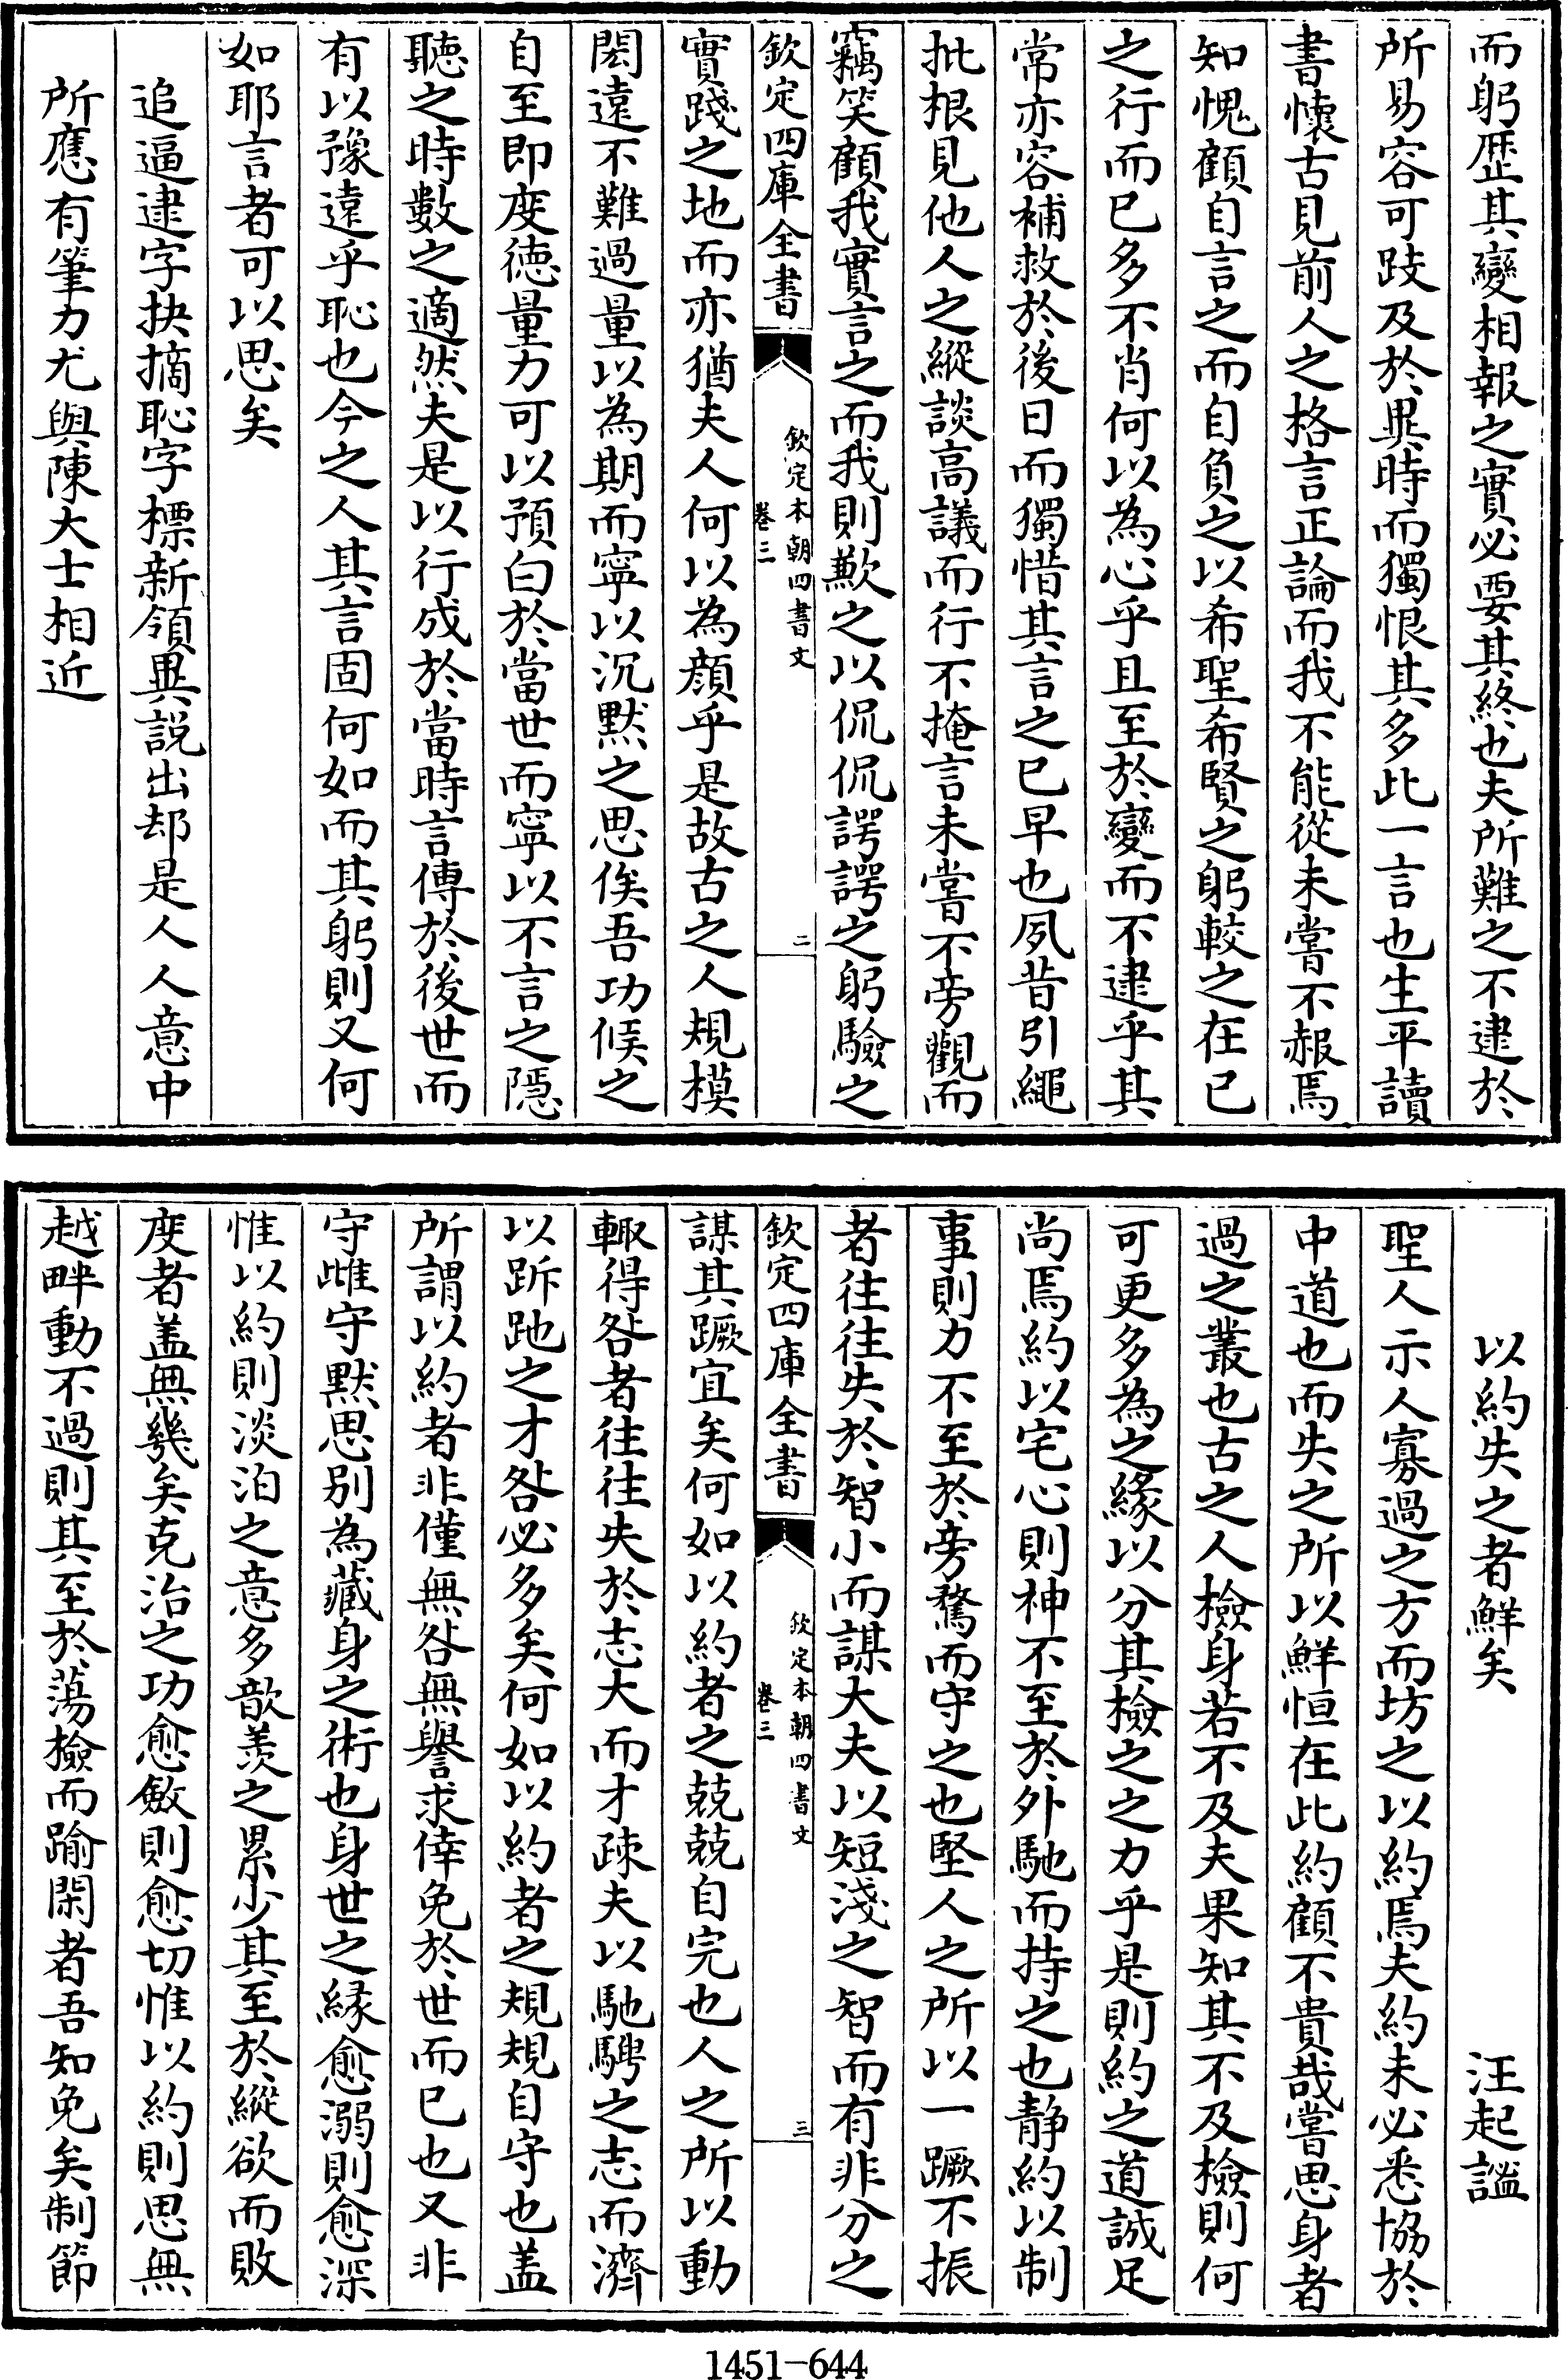 而躬歴其變相報之實必要其終也夫所難之不逮於
所易容可跂及於異時而獨恨其多此一言也生平讀
書懐古見前人之格言正論而我不能從未嘗不赧焉
知愧顧自言之而自負之以希聖希賢之躬較之在已
之行而已多不肖何以為心乎且至於變而不逮乎其
常亦容補救於後日而獨惜其言之已早也夙昔引繩
批根見他人之縱談高議而行不掩言未嘗不旁觀而
竊笑顧我實言之而我則歉之以侃侃諤諤之躬驗之
欽定四庫全書
欽定本朝四書文
卷三
二
實踐之地而亦猶夫人何以為顔乎是故古之人規模
閎遠不難過量以為期而寧以沉黙之思俟吾功候之
自至即度徳量力可以預白於當世而寧以不言之隠
聽之時數之適然夫是以行成於當時言傳於後世而
有以豫遠乎恥也今之人其言固何如而其躬則又何
如耶言者可以思矣
追逼逮字抉摘恥字標新領異説出却是人人意中
所應有筆力尤與陳大士相近
以約失之者鮮矣
汪起謐
聖人示人寡過之方而坊之以約焉夫約未必悉協於
中道也而失之所以鮮恒在此約顧不貴哉嘗思身者
過之叢也古之人檢身若不及夫果知其不及檢則何
可更多為之緣以分其檢之之力乎是則約之道誠足
尚焉約以宅心則神不至於外馳而持之也静約以制
事則力不至於旁騖而守之也堅人之所以一蹶不振
者往往失於智小而謀大夫以短淺之智而有非分之
欽定四庫全書
欽定本朝四書文
卷三
三
謀其蹶宜矣何如以約者之兢兢自完也人之所以動
輒得咎者往往失於志大而才疎夫以馳騁之志而濟
以跅跎之才咎必多矣何如以約者之規規自守也盖
所謂以約者非僅無咎無譽求倖免於世而已也又非
守雌守黙思别為藏身之術也身世之縁愈溺則愈深
惟以約則淡泊之意多歆羡之累少其至於縱欲而敗
度者盖無幾矣克治之功愈斂則愈切惟以約則思無
越畔動不過則其至於蕩撿而踰閑者吾知免矣制節
1451-644